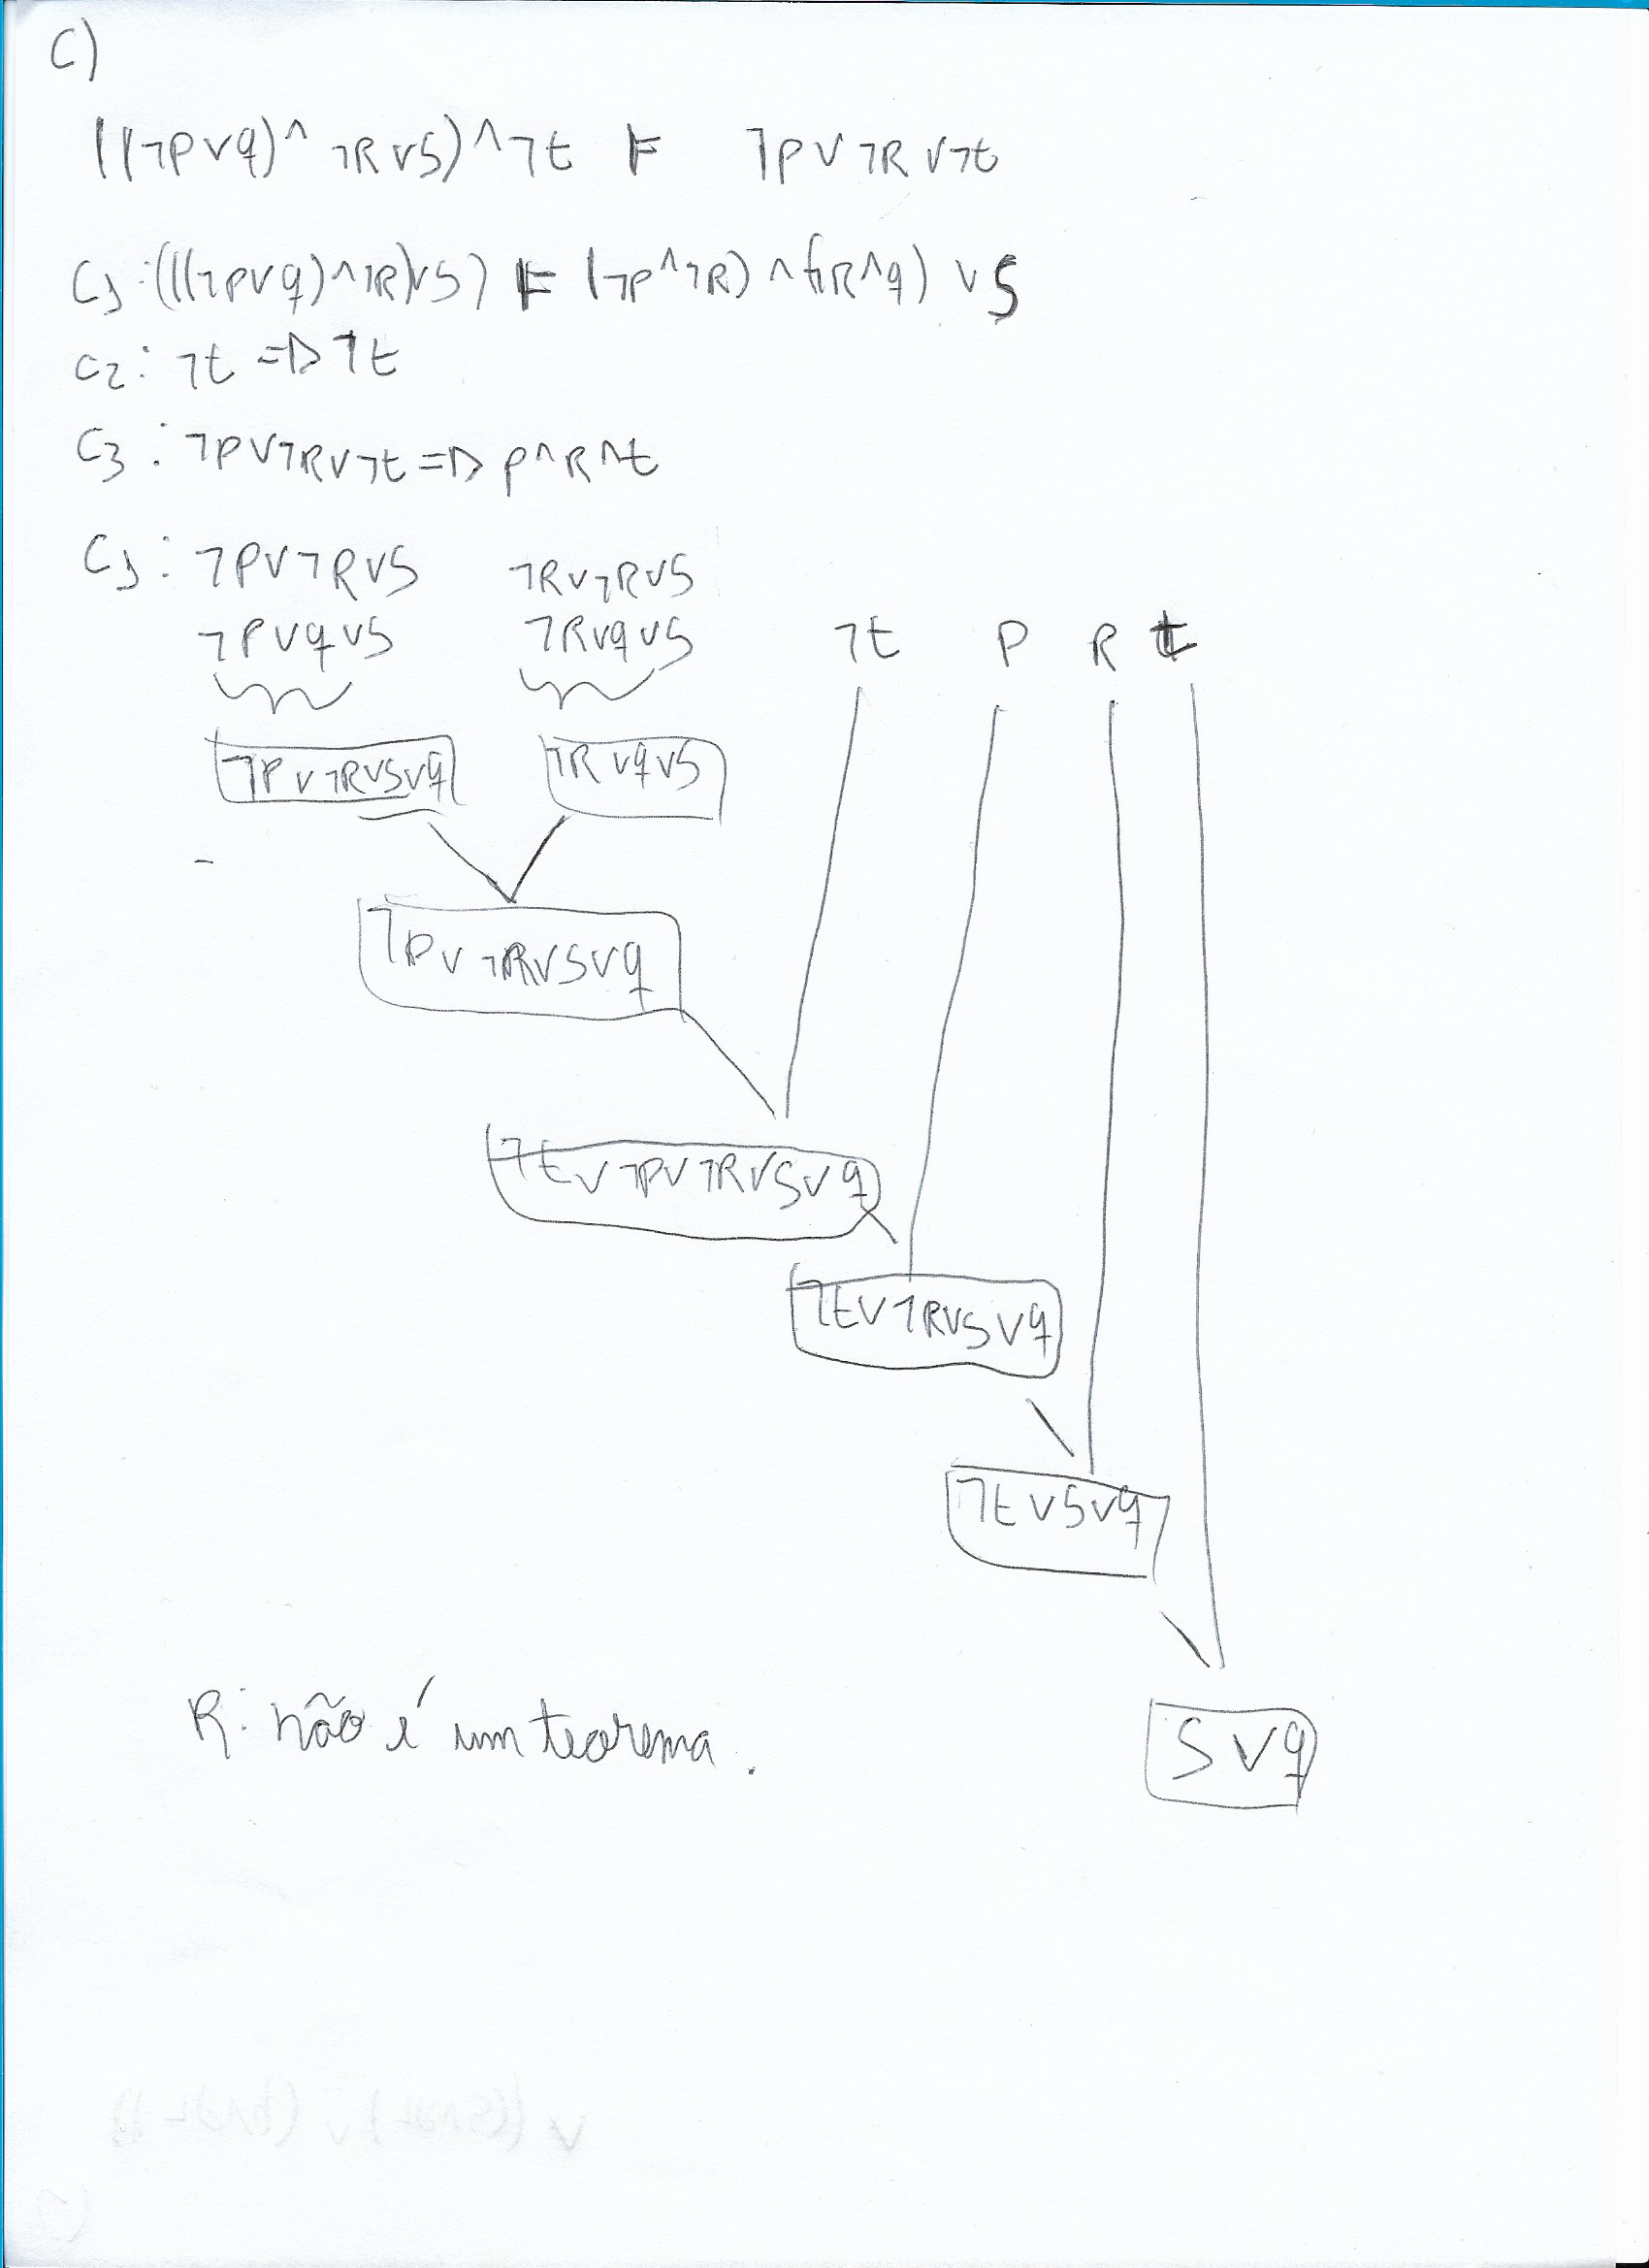 C)
((¬P∨q)^ ¬R∨S)^¬t ⊨ ¬P∨¬R∨¬t
C1:(((¬P∨q)^¬R)∨S) ⊨ (¬P^¬R) ^ (¬R^q) ∨ S
C2: ¬t => ¬t
C3: ¬P∨¬R∨¬t => P^R^t
C1: ¬P∨¬R∨S ¬R∨¬R∨S
¬P∨q∨S ¬R∨q∨S ¬t P R t
¬P∨¬R∨S∨q ¬R∨q∨S
¬P∨¬R∨S∨q
¬t∨¬P∨¬R∨S∨q
¬t∨¬R∨S∨q
¬t∨S∨q
R: não é um teorema.
S∨q